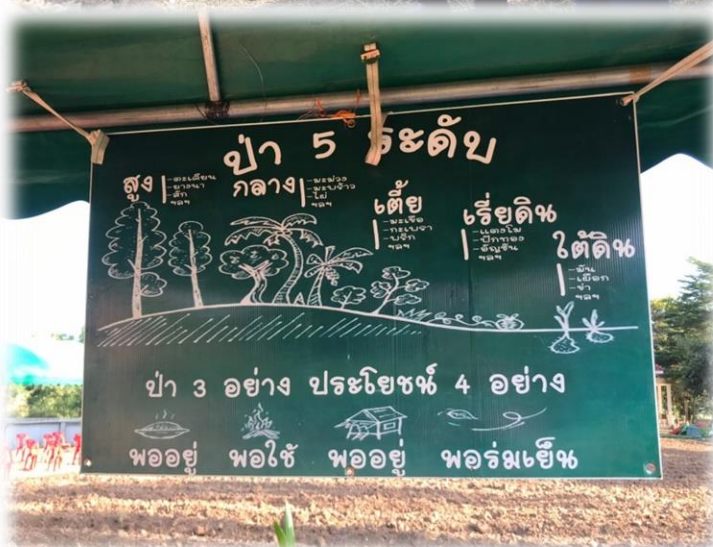 ป่า 5 ระดับ
สูง
-ตะเคียน
-ยางนา
-สัก
ฯลฯ
กลาง
-มะม่วง
-มะพร้าว
-ไผ่
ฯลฯ
เตี้ย
-มะเขือ
-กะเพรา
-พริก
ฯลฯ
เรี่ยดิน
-แตงโม
-ฟักทอง
-อัญชัน
ฯลฯ
ใต้ดิน
-มัน
-เผือก
-ข่า
ฯลฯ
ป่า 3 อย่าง ประโยชน์ 4 อย่าง
พออยู่ พอใช้ พออยู่ พอร่มเย็น